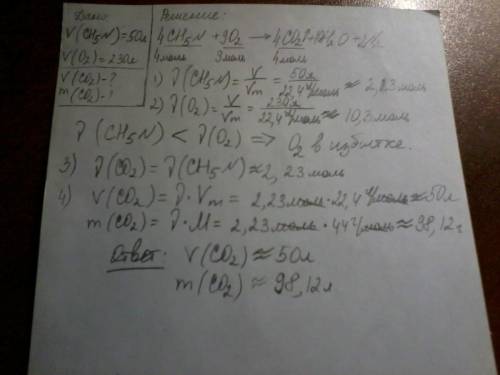 Дано:
V(CH₅N)=50л
V(O₂)=230л
V(CO₂)-?
m(CO₂)-?
Решение:
4CH₅N + 9O₂ → 4CO₂↑+10H₂O+2N₂
4моль 9моль 4моль
1) ν(CH₅N)= V/Vm = 50л/22,4л/моль ≈ 2,23моль
2) ν(O₂)= V/Vm = 230л/22,4л/моль ≈ 10,3моль
ν(CH₅N) < ν(O₂) ⇒ O₂ в избытке.
3) ν(CO₂)=ν(CH₅N)≈2,23моль
4) V(CO₂)=ν·Vm=2,23моль·22,4л/моль≈50л
m(CO₂)=ν·M=2,23моль·44г/моль≈98,12г
Ответ: V(CO₂)≈50л
m(CO₂)≈98,12л